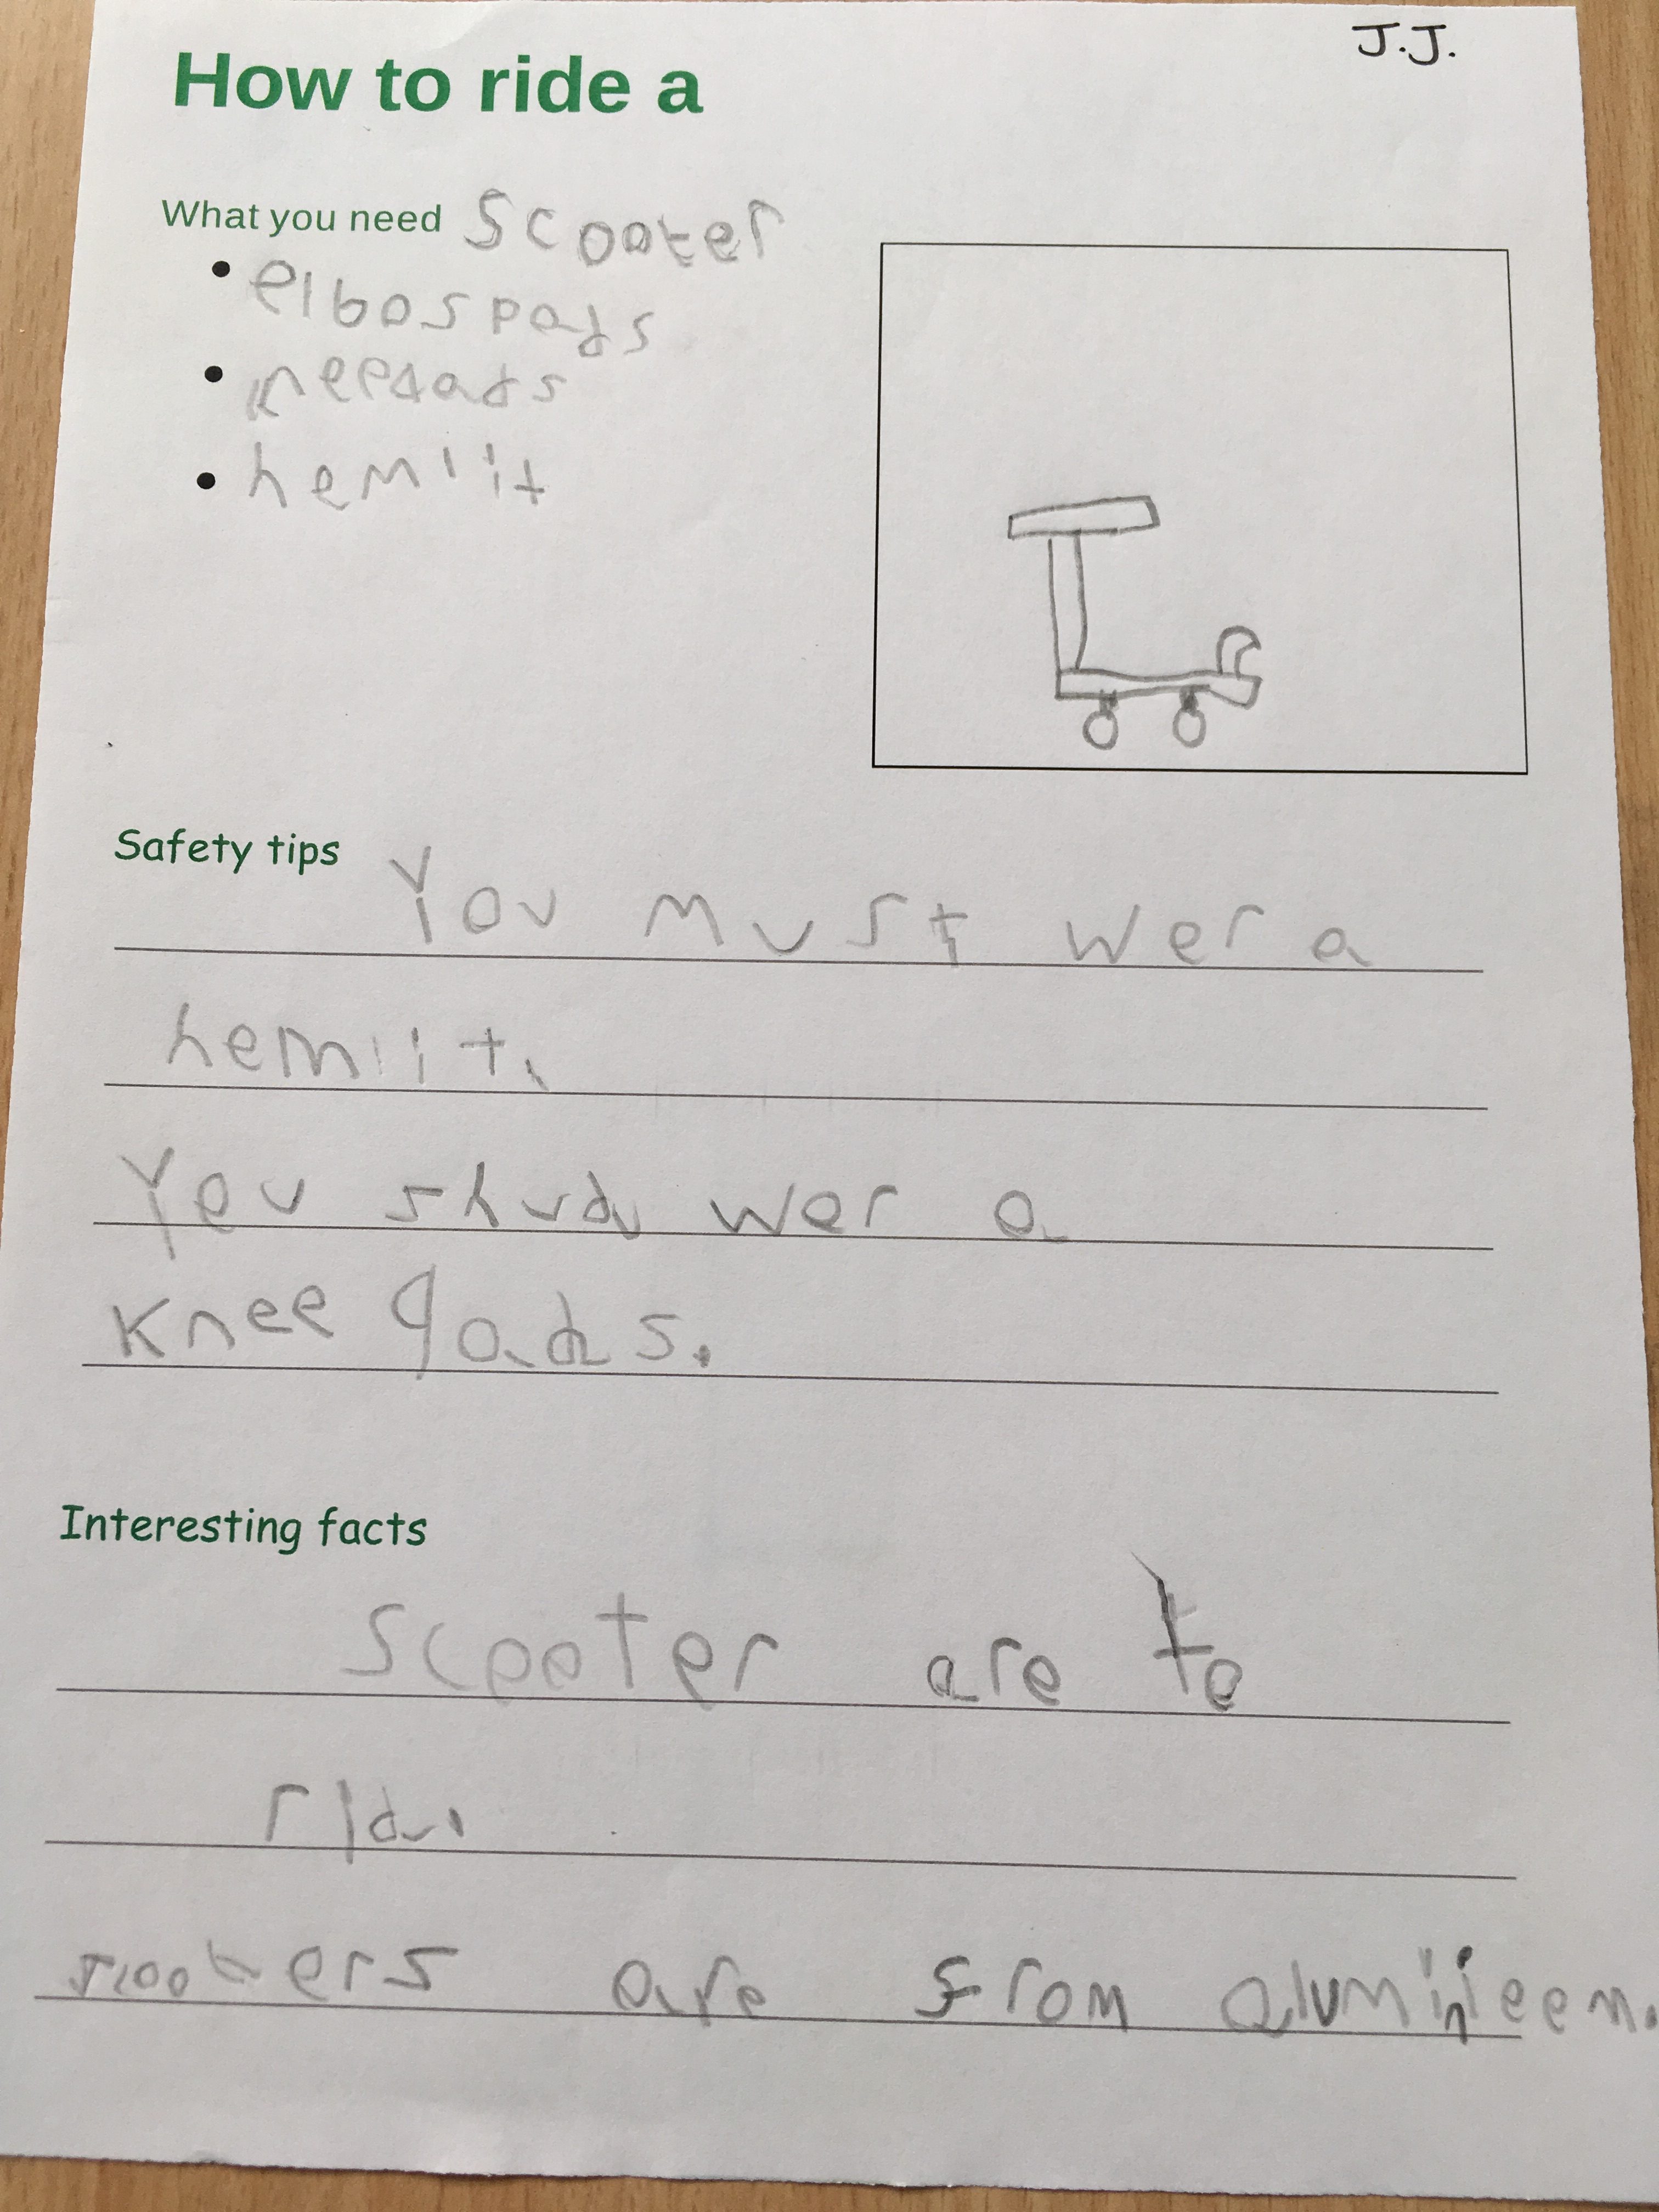 J.J.
How to ride a
What you need scooter
• elbos pads
• kneepads
• hemlit
Safety tips You must wer a
hemlit.
You shud wer a
Knee pads.
Interesting facts
scooter are to
rid.
scooters are from alumineem.